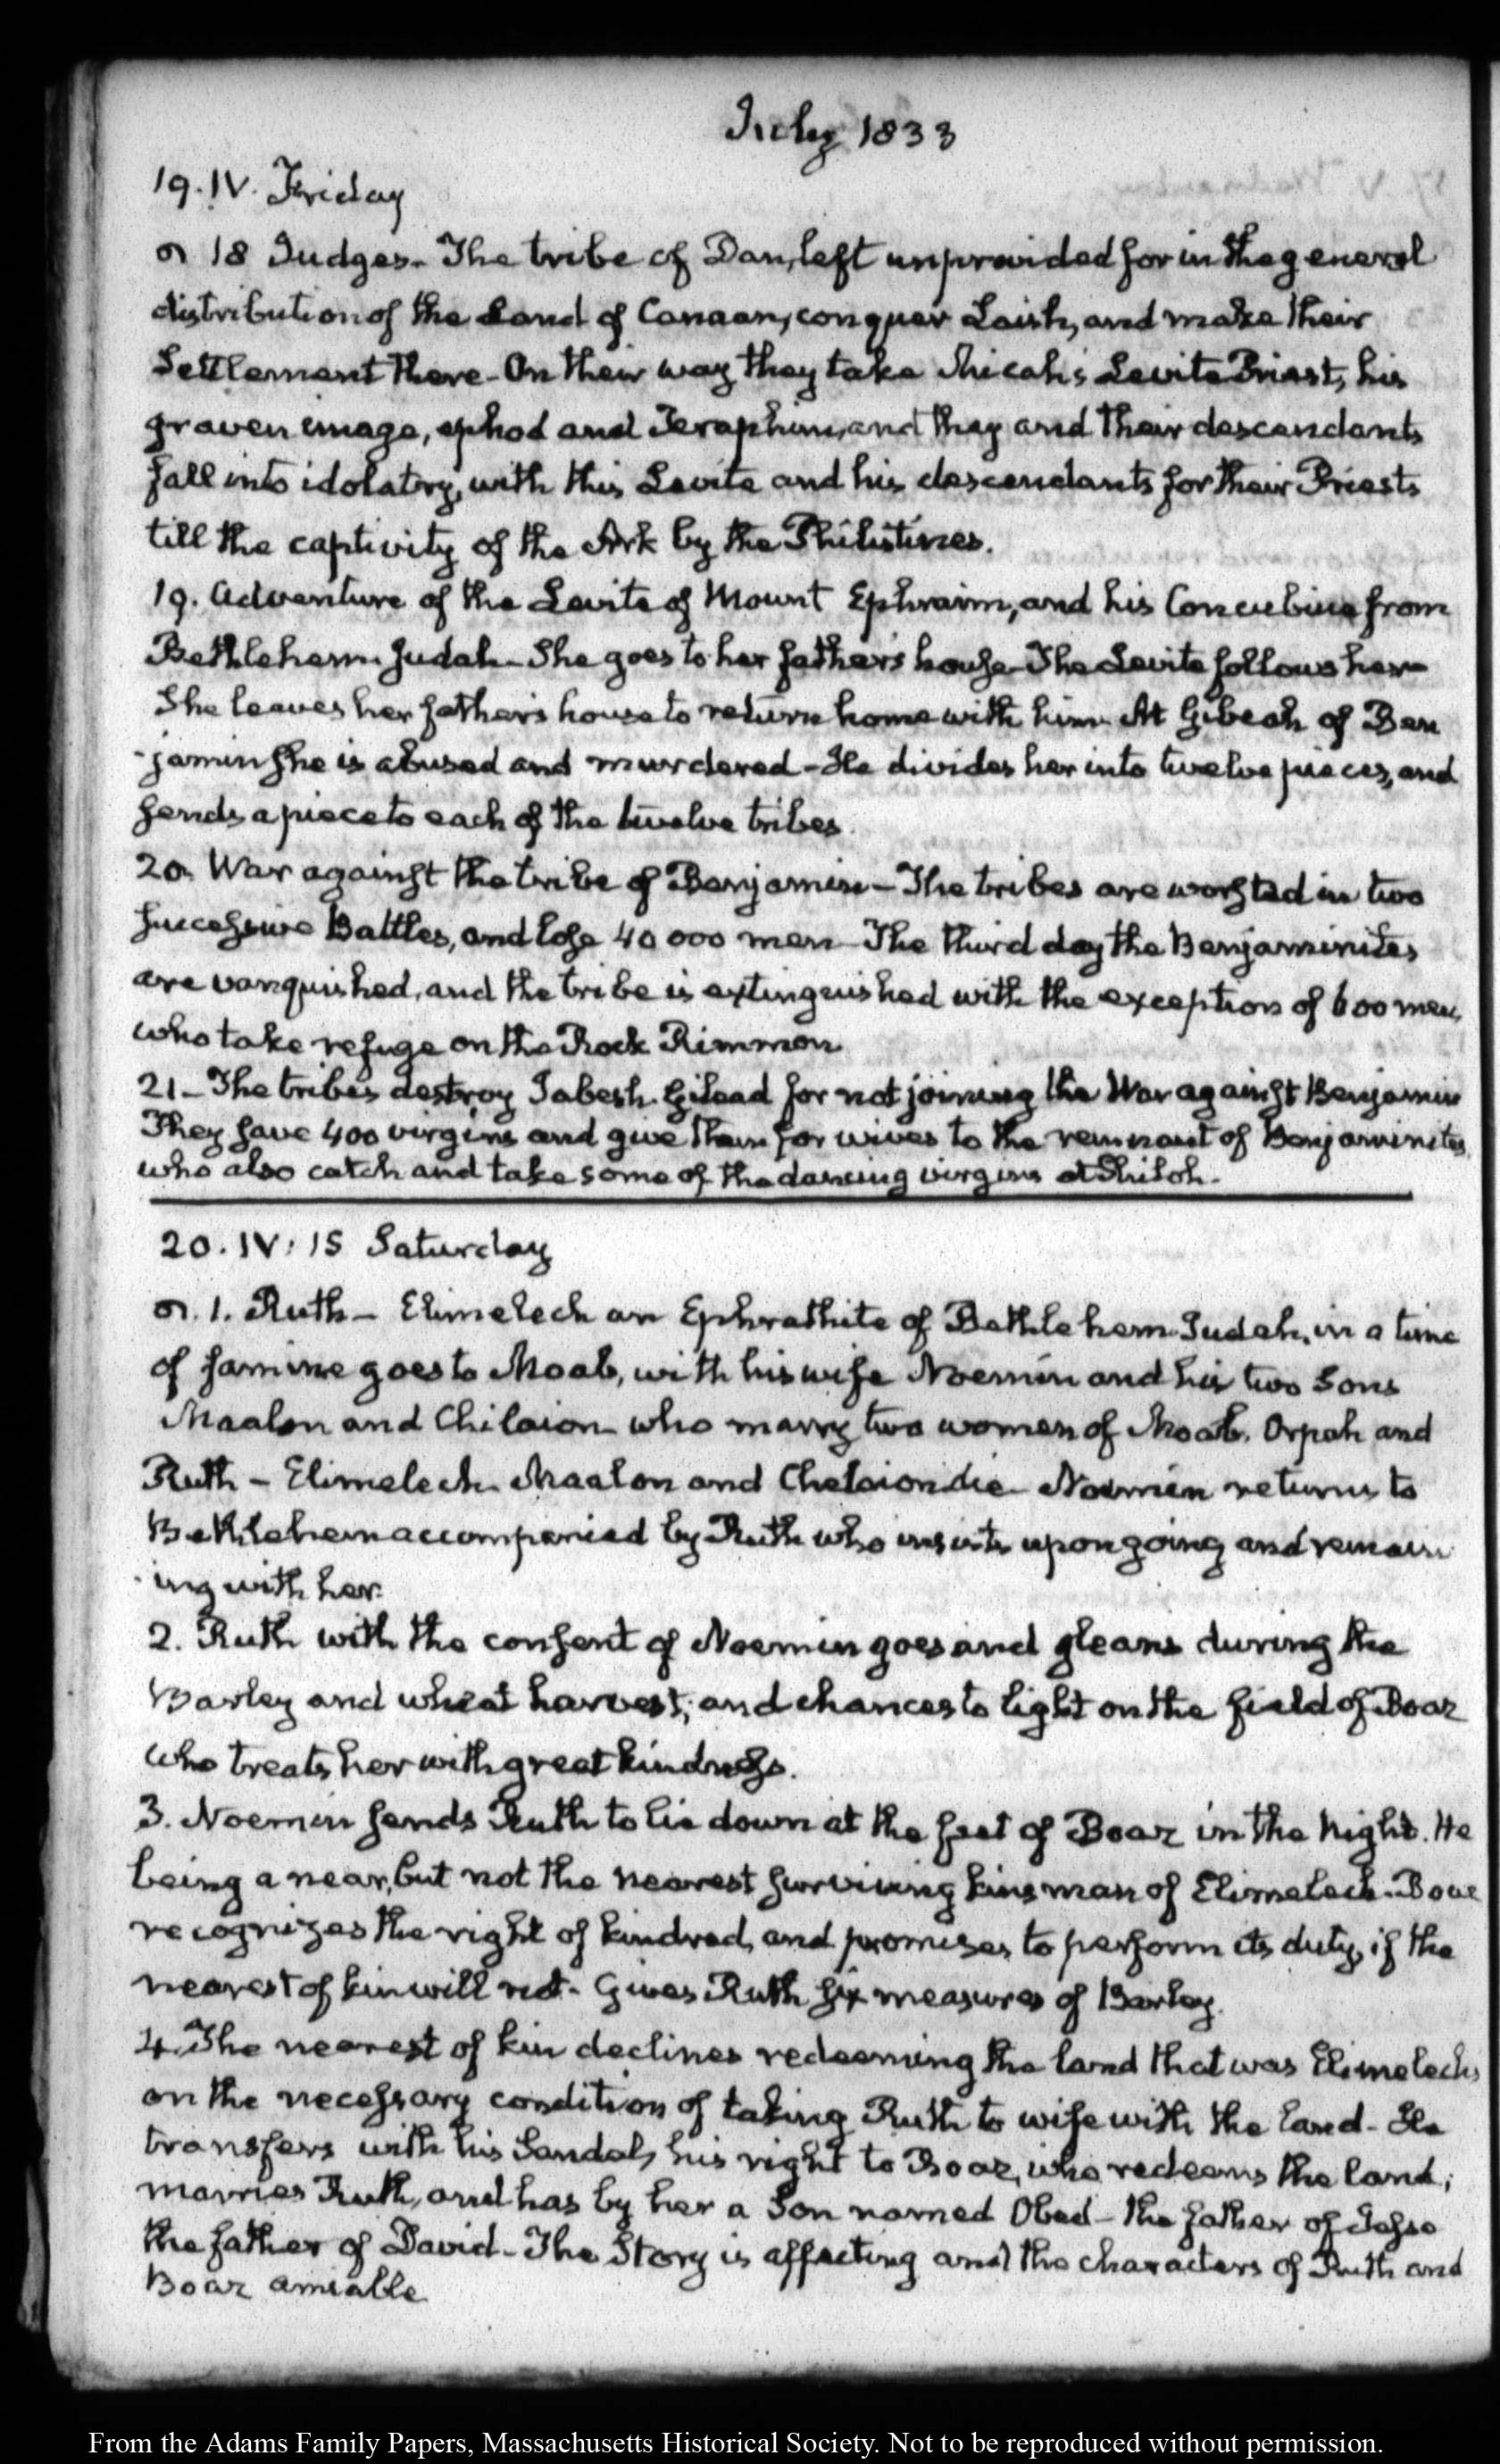 July 1833
19. IV. Friday
18 Judges. The tribe of Dan, left unprovided for in the general
distribution of the Land of Canaan, conquer Laish, and make their
Settlement there - On their way they take Micah's Levite Priest, his
graven image, ephod and Teraphim, and they and their descendants
fall into idolatry, with this Levite and his descendants for their Priests
till the captivity of the Ark by the Philistines.
19. Adventure of the Levite of Mount Ephraim, and his Concubine from
Bethlehem Judah - She goes to her father's house - The Levite follows her -
She leaves her father's house to return home with him - At Gibeah of Ben
-jamin she is abused and murdered - He divides her into twelve pieces, and
sends a piece to each of the twelve tribes.
20. War against the tribe of Benjamin - The tribes are worsted in two
successive Battles, and lose 40 000 men - The third day the Benjaminites
are vanquished, and the tribe is extinguished with the exception of 600 men,
who take refuge on the Rock Rimmon
21 - The tribes destroy Jabesh Gilead for not joining the War against Benjamin
They save 400 virgins and give them for wives to the remnant of Benjaminites,
who also catch and take some of the dancing virgins at Shiloh.
20. IV: 15 Saturday
1. Ruth - Elimelech an Ephrathite of Bethlehem Judah, in a time
of famine goes to Moab, with his wife Noemin and his two Sons
Maalon and Chilaion who marry two women of Moab. Orpah and
Ruth - Elimelech Maalon and Chelaion die - Noemin returns to
Bethlehem accompanied by Ruth who insists upon going and remain
-ing with her.
2. Ruth with the consent of Noemin goes and gleans during the
Barley and wheat harvest, and chances to light on the field of Boaz
who treats her with great kindness.
3. Noemin sends Ruth to lie down at the feet of Boaz in the Night. He
being a near, but not the nearest surviving kinsman of Elimelech. Boaz
recognizes the right of kindred, and promises to perform its duty, if the
nearest of kin will not - Gives Ruth six measures of Barley.
4. The nearest of kin declines redeeming the land that was Elimelech's
on the necessary condition of taking Ruth to wife with the land - He
transfers with his Sandal, his right to Boaz, who redeems the land;
marries Ruth, and has by her a Son named Obed - the father of Jesse
the father of David - The Story is affecting and the characters of Ruth and
Boaz amiable
From the Adams Family Papers, Massachusetts Historical Society. Not to be reproduced without permission.